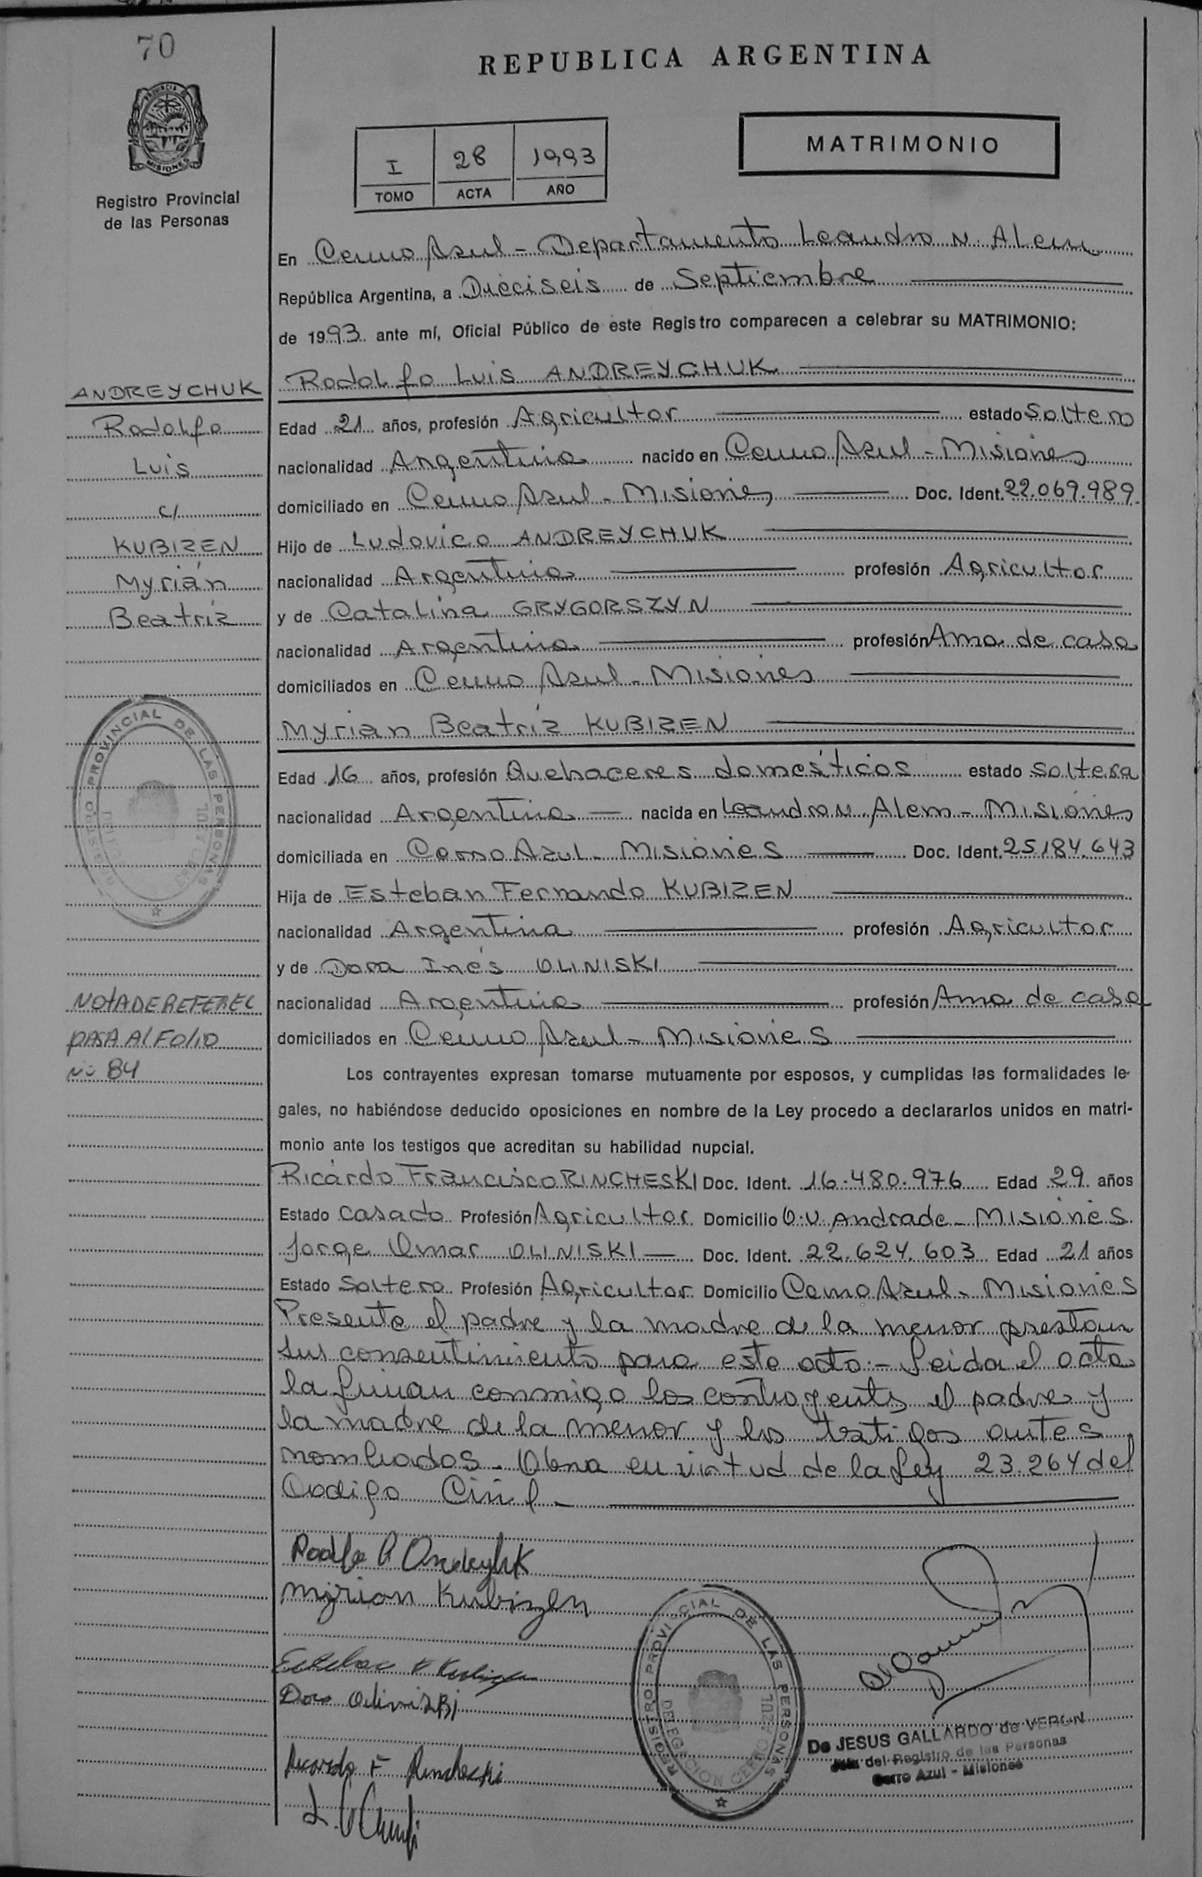 70
REPUBLICA ARGENTINA
PROVINCIA DE MISIONES
Registro Provincial
de las Personas
MATRIMONIO
I 28 1993
TOMO ACTA AÑO
En Cerro Azul - Departamento Leandro N. Alem
República Argentina, a Dieciseis de Septiembre
de 1993 ante mí, Oficial Público de este Registro comparecen a celebrar su MATRIMONIO:
Rodolfo Luis ANDREYCHUK
Edad 21 años, profesión Agricultor estado Soltero
nacionalidad Argentina nacido en Cerro Azul - Misiones
domiciliado en Cerro Azul - Misiones Doc. Ident. 22.069.989
Hijo de Ludovico ANDREYCHUK
nacionalidad Argentina profesión Agricultor
y de Catalina GRYGORSZYN
nacionalidad Argentina profesión Ama de casa
domiciliados en Cerro Azul - Misiones
Myrian Beatríz KUBIZEN
Edad 16 años, profesión Quehaceres domésticos estado Soltera
nacionalidad Argentina nacida en Leandro N. Alem - Misiones
domiciliada en Cerro Azul - Misiones Doc. Ident. 25.184.643
Hija de Esteban Fernando KUBIZEN
nacionalidad Argentina profesión Agricultor
y de Dora Inés OLINISKI
nacionalidad Argentina profesión Ama de casa
domiciliados en Cerro Azul - Misiones
Los contrayentes expresan tomarse mutuamente por esposos, y cumplidas las formalidades le-
gales, no habiéndose deducido oposiciones en nombre de la Ley procedo a declararlos unidos en matri-
monio ante los testigos que acreditan su habilidad nupcial.
Ricardo Francisco RINCHESKI Doc. Ident. 16.480.976 Edad 29 años
Estado Casado Profesión Agricultor Domicilio O.V. Andrade - Misiones
Jorge Omar OLINISKI Doc. Ident. 22.624.603 Edad 21 años
Estado Soltero Profesión Agricultor Domicilio Cerro Azul - Misiones
Presente el padre y la madre de la menor prestan
sus consentimiento para este acto.- Leida el acta
la firman conmigo los contrayentes el padre y
la madre de la menor y los testigos antes
nombrados. Obra en virtud de la Ley 23.264 del
Codigo Civil.-
ANDREYCHUK
Rodolfo
Luis
c/
KUBIZEN
Myrián
Beatríz
REGISTRO PROVINCIAL DE LAS PERSONAS
NOTA DE REFEREC
PASA Al FOLIO
Nº 84
Myrian Kubizen
Ricardo F Rincheski
REGISTRO PROVINCIAL DE LAS PERSONAS
DELEGACION CERRO AZUL
De JESUS GALLARDO de VERON
Jefe del Registro de las Personas
Cerro Azul - Misiones